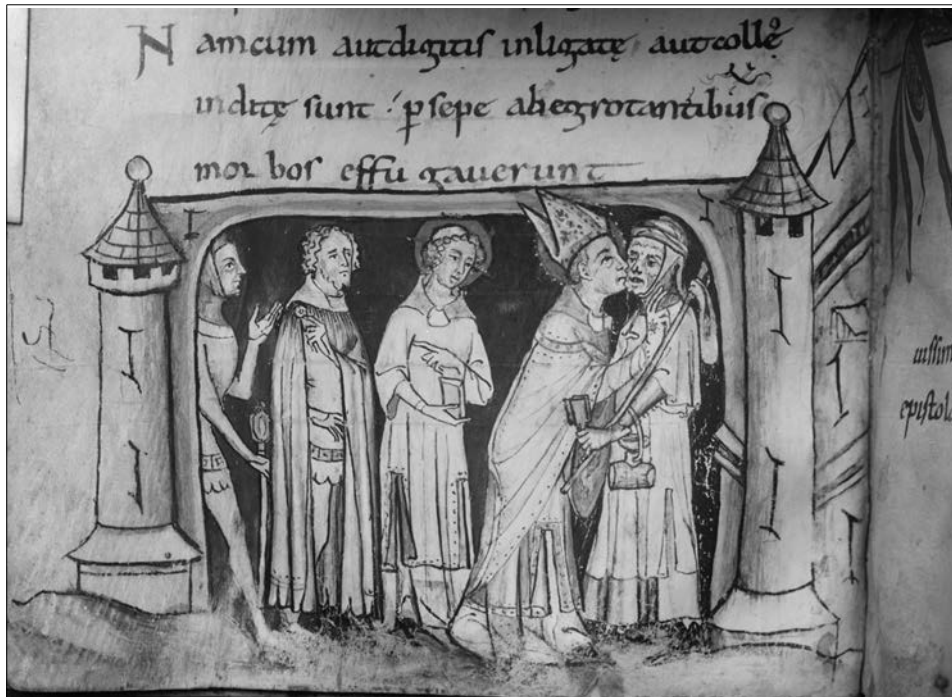 Nam cum aut digitis inligatę aut collo
inditę sunt p̱sepe ab egrotantibus
morbos effugaverunt
epistol